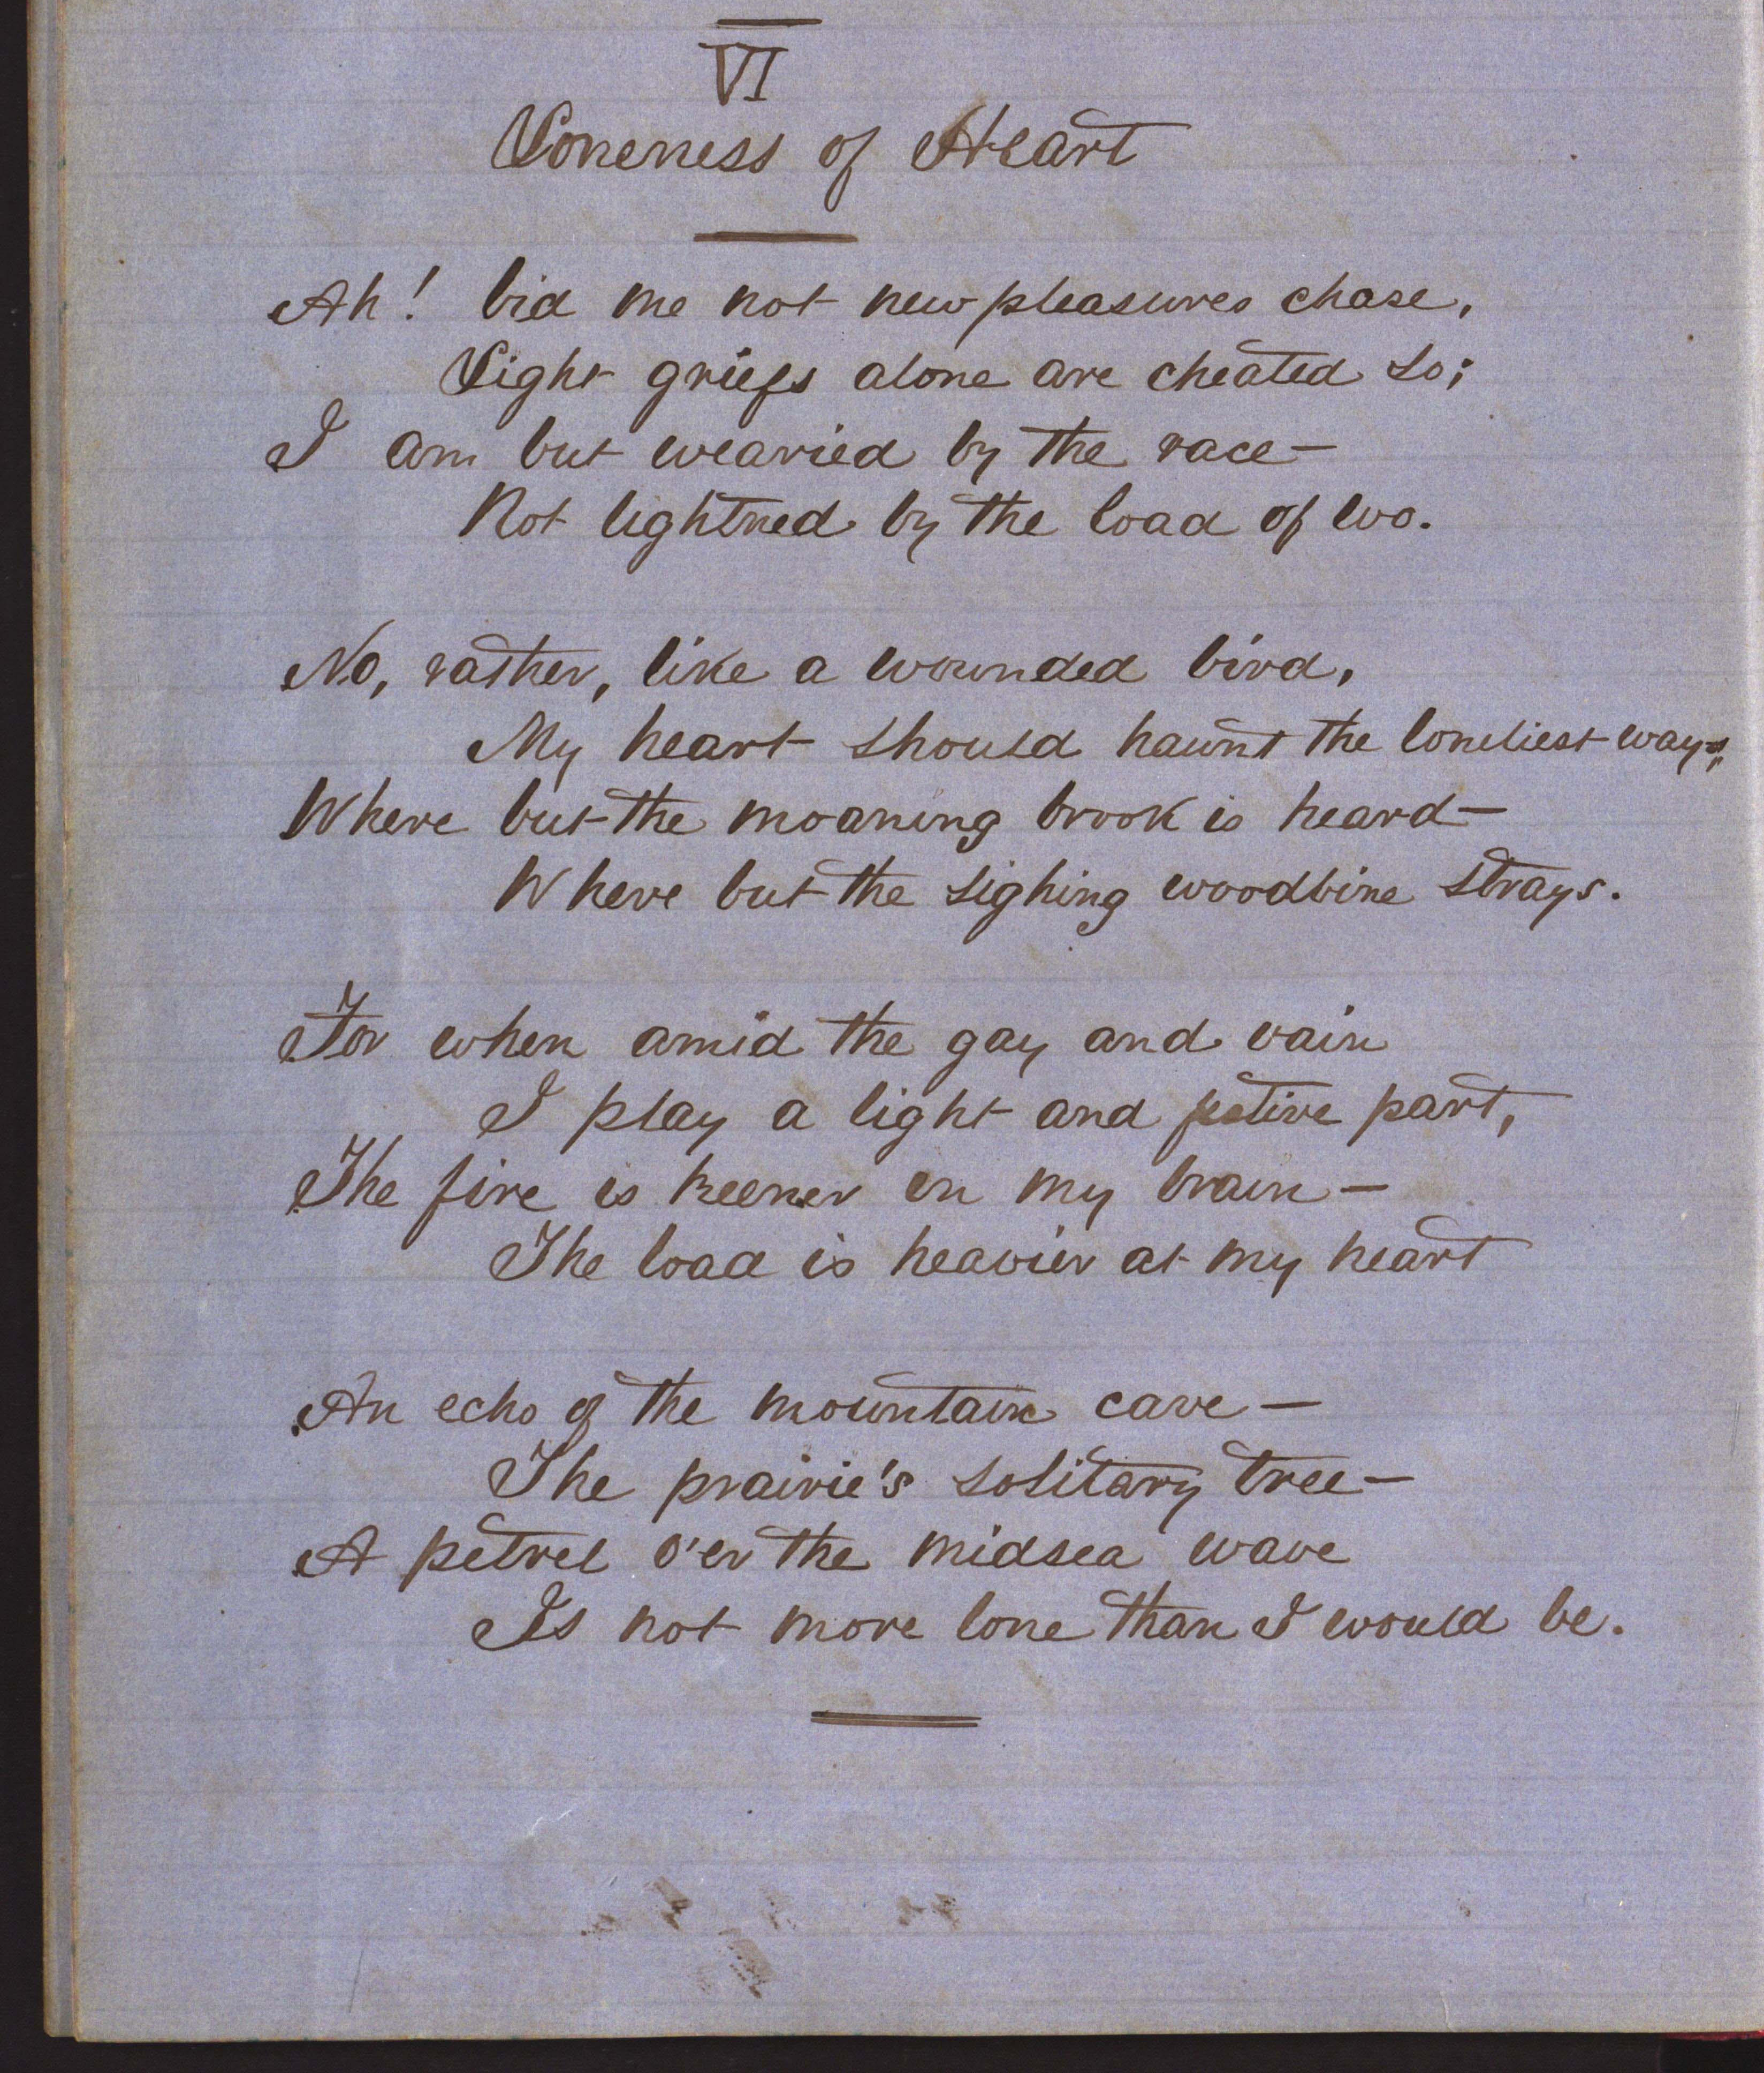 VI
Loneness of Heart
Ah! bid me not new pleasures chase,
Light griefs alone are cheated so;
I am but wearied by the race—
Not lightned by the load of wo.
No, rather, like a wounded bird,
My heart should haunt the loneliest ways,
Where but the moaning brook is heard—
Where but the sighing woodbine strays.
For when amid the gay and vain
I play a light and festive part,
The fire is keener in my brain—
The load is heavier at my heart
An echo of the mountain cave—
The prairie's solitary tree—
A petrel o'er the midsea wave
Is not more lone than I would be.